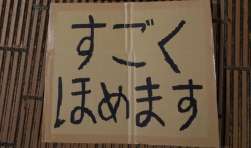 すごく
ほめます